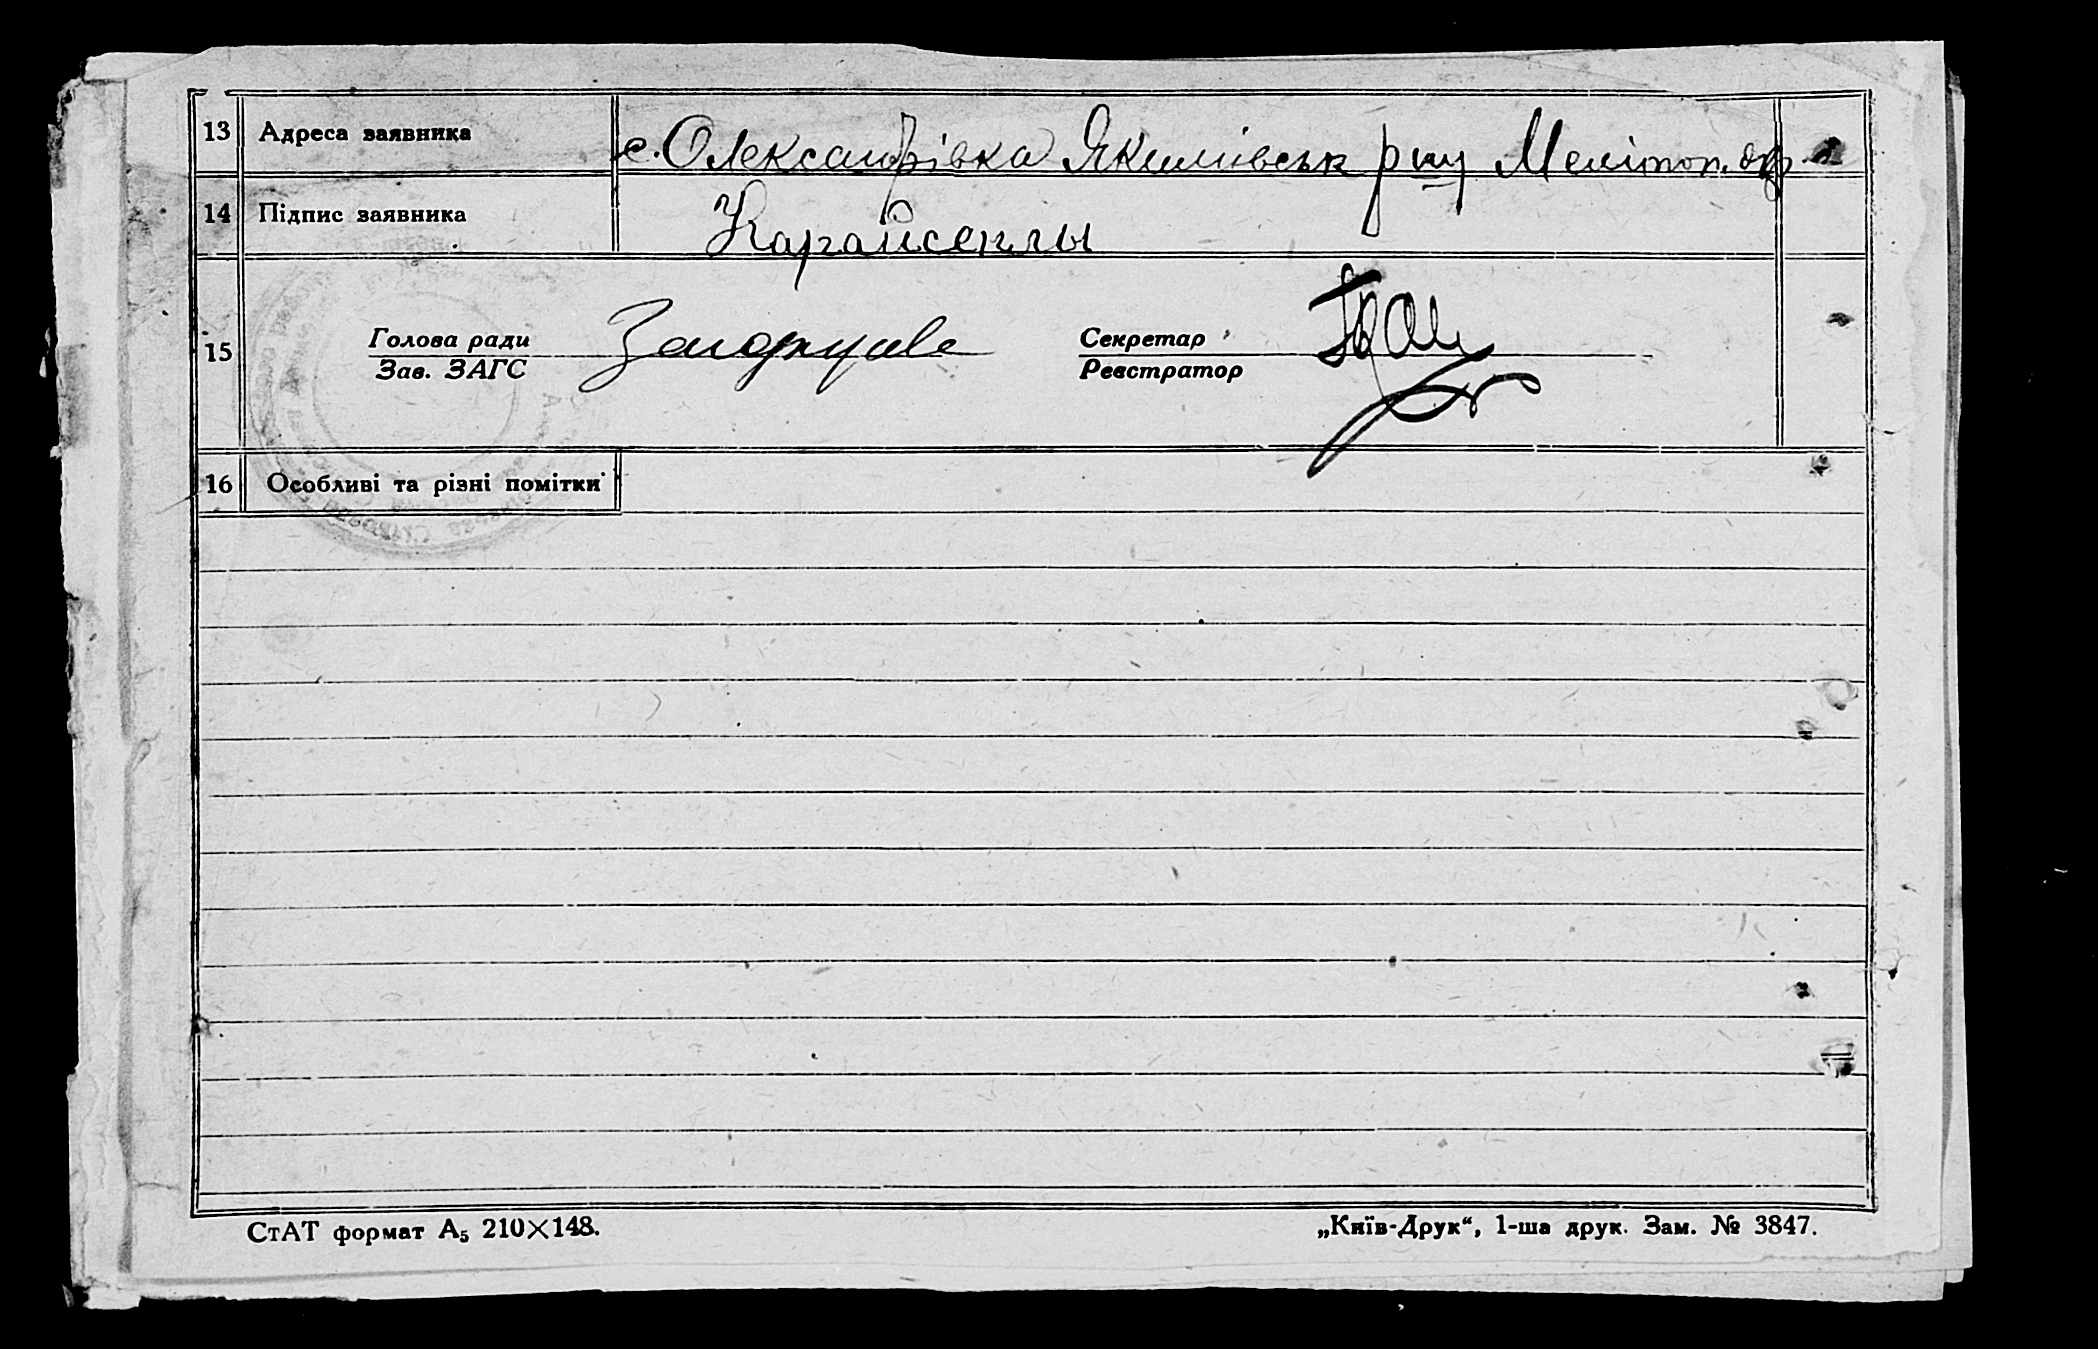 13 Адреса заявника с. Олександрівка Якимівськ р ну Мелітоп. окр.
14 Підпис заявника Карайсеклы
15 Голова ради Секретар
Зав. ЗАГС Реєстратор
16 Особливі та різні помітки
СтАТ формат А5 210×148. „Київ-Друк“, 1-ша друк. Зам. № 3847.